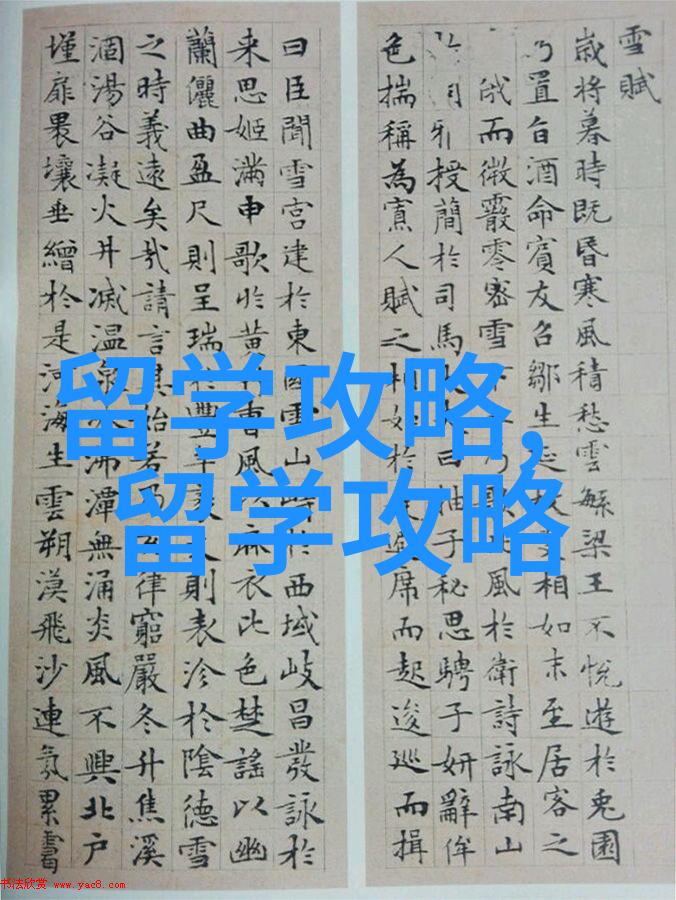 雪賦
歲將暮時既昏寒風積愁雲繁梁王不悅遊於兔園
乃置旨酒命賓友召鄒生延枚叟相如末至居客之
俄而微霰零密雪下乃歌北風於衛詩詠南山
雅授簡於司馬大夫曰抽子秘思騁子妍辭侔
色揣稱為寡人賦之相如於是避席而起逡巡而揖
曰臣聞雪宮建於東國雪山峙於西域岐昌發詠於
来思姬滿申歌於黃竹曹風以麻衣比色楚謠以幽
蘭儷曲盈尺則呈瑞於豐年袤丈則表沴於陰德雪
之時義遠矣哉請言其始若乃玄律窮嚴冬升焦溪
涸湯谷凝火井滅溫泉冰沸潭無涌炎風不興北戶
墐扉裸壤垂繒於是河海生雲朔漠飛沙連氛累靄
留学攻略,
留学攻略
书法欣赏 www.yac8.com